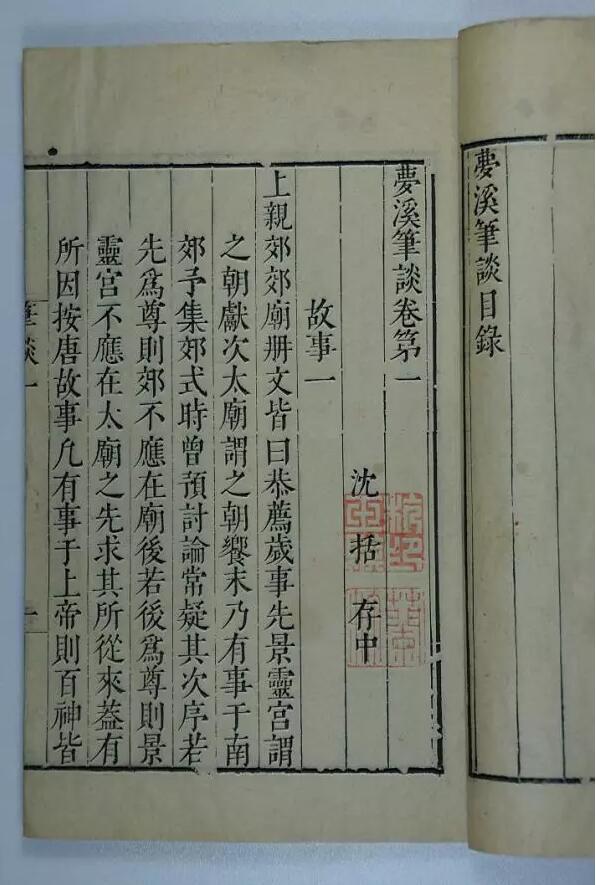 夢溪筆談目錄
夢溪筆談卷第一
沈括存中
故事一
上親郊郊廟册文皆曰恭薦歲事先景靈宮謂
之朝獻次太廟謂之朝饗末乃有事于南
郊予集郊式時曾預討論常疑其次序若
先爲尊則郊不應在廟後若後爲尊則景
靈宮不應在太廟之先求其所從來葢有
所因按唐故事凢有事于上帝則百神皆
筆談一
一